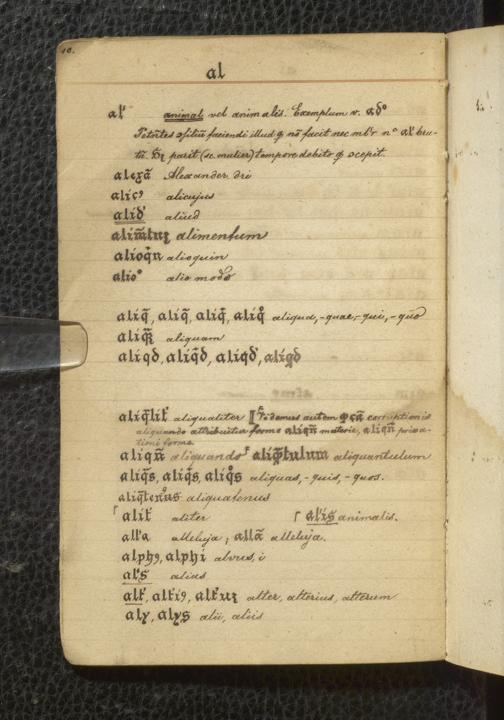 10.
al
al' animal vel animalis. Exemplum v. ad°
faciendi illud non facit nec
parit (sc. mulier) tempore debito
alexā Alexander dri
alic⁹ alicujus
alid' aliud
alimentum
alioq̄n alioquin
alio° alio modo
aliq̄, aliq̄, aliq̄, aliq̊ aliqua, -quae, -qui, -quo
aliquam
aliqd, aliq̄d, aliqd', aliqd
aliq̄lit' aliqualiter Videmus autem corruptionis
aliquando attribuitur forme aliqn̄ materie, aliqn̄ priva-
tioni forme.
aliqn̄ aliquando aliq̄tulum aliquantulum
aliq̄s, aliq̇s, aliq̊s aliquas, -quis, -quos.
aliquatenus
alit' aliter al'is animalis.
all'a alleluja; allā alleluja.
alph⁹, alphi alvus, i
al's alias
alt', alt'i⁹, alter, alterius, alterum
aly, alys alii, aliis